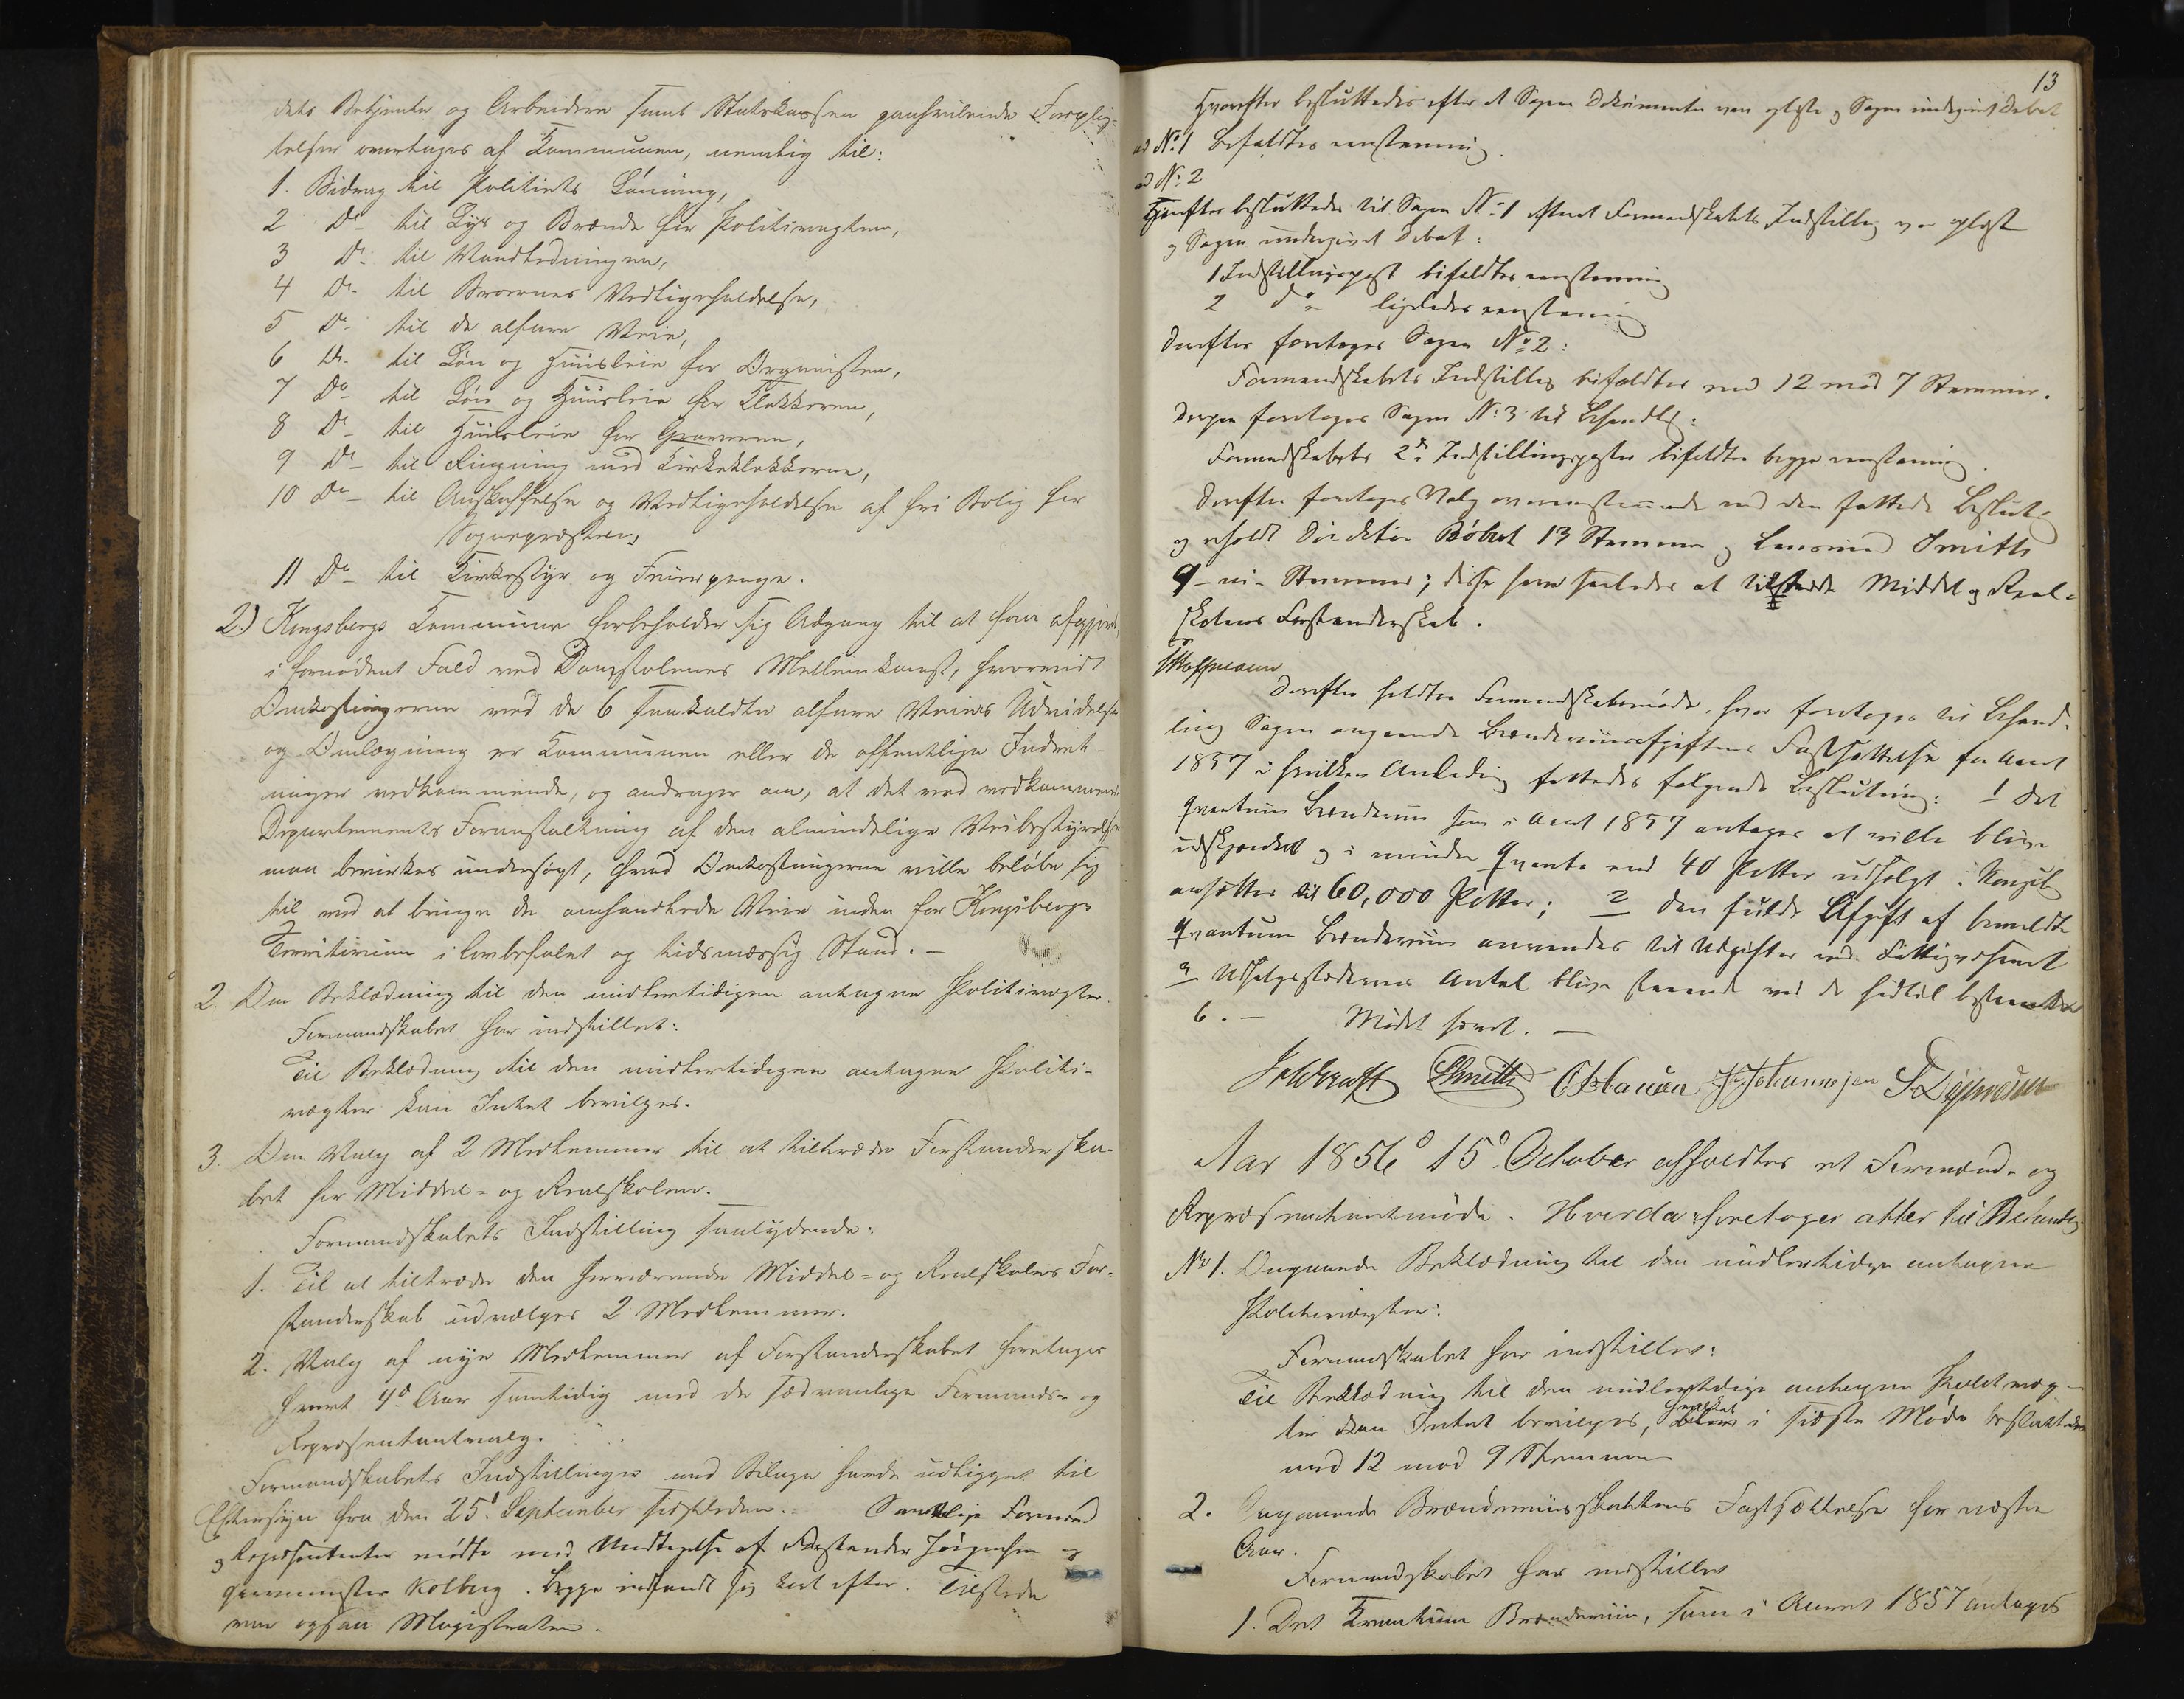 dets Betjente og Arbeidere samt Statskassen paahvilende Forplig-
telser overtages af Kommunen, nemlig til:
1. Bidrag til Politiets Lønning,
2 Do til Lys og Brænde for Politivagten,
3 Do til Vandledningen,
4 Do til Broernes Vedligeholdelse,
5 Do til de alfare Veie,
6 Do til Løn og Huusleie for Organisten,
7 Do til Løn og Huusleie for Klokkeren,
8 Do til Huusleie for Graveren,
9 Do til Ringning med Kirkeklokkerne,
10 Do til Anskaffelse og Vedligeholdelse af fri Bolig for
Sognepræsten,
11 Do til Kirkestyr og Feierpenge.
2.) Kongsbergs Kommune forbeholder sig Adgang til at faae afgjort,
i fornødent Fald ved Domstolenes Mellemkomst, hvorvidt
Omkostningerne ved de 6 saakaldte alfare Veies Udvidelse
og Omlægning er Kommunen eller de offentlige Indret-
ninger vedkommende, og andrager om, at det ved vedkommende
Departements Foranstaltning af den almindelige Veibestyrelse
maa bevirkes undersøgt, hvad Omkostningerne ville beløbe sig
til ved at bringe de omhandlede Veie inden for Kongsbergs
Territorium i lovbefalet og tidsmæssig Stand. —
2. Om Beklædning til den midlertidigen antagne Politivægter.
Formandskabet har indstillet:
Til Beklædning til den midlertidigen antagne Politi-
vægter kan Intet bevilges.
3. Om Valg af 2 Medlemmer til at tiltræde Forstanderska-
bet for Middel- og Realskolen.
Formandskabets Indstilling saalydende:
1. Til at tiltræde den herværende Middel- og Realskoles For-
standerskab udvælges 2 Medlemmer.
2. Valg af nye Medlemmer af Forstanderskabet foretages
hvert 4de Aar samtidig med de sædvanlige Formands- og
Repræsentantvalg.
Formandskabets Indstillinger med Bilage havde udligget til
Eftersyn fra den 25d September sidstleden. Samtlige Formænd
og Repræsentanter mødte med Undtagelse af Forstander Jørgensen og
Kolberg. Begge indfandt sig kort efter. Tilstede
var ogsaa Magistraten.
13
Hvorefter besluttedes efter at Sagens Dokumenter vare oplæste og Sagen undergivet Debat
ad No 1 bifaldtes eenstemmig.
ad No 2
Hvorefter besluttedes til Sagen No 1 efterat Formandskabets Indstilling var oplæst
og Sagen undergivet Debat:
1 Indstillingspost bifaldtes eenstemmig
2 do ligeledes eenstemmig
Derefter foretoges Sagen No 2:
Formandskabets Indstilling bifaldtes med 12 mod 7 Stemmer.
Derpaa foretoges Sagen No 3 til Behandling:
Formandskabets 2de Indstillingsposter bifaldtes begge eenstemmig.
Derefter foretoges Valg overensstemmende med den fattede Beslutning
og erholdt Direktør Bøbert 13 Stemmer og Smith
9 – ni – Stemmer; disse have saaledes at tiltræde Middel og Real-
skolens Forstanderskab.
Derefter holdtes Formandskabsmøde, hvor foretoges til Behand-
ling Sagen angaaende Brændeviinsafgiftens Fastsættelse for Aaret
1857 i hvilken Anledning fattedes følgende Beslutning: 1 Det
Qvantum Brændeviin som i Aaret 1857 antages at ville blive
udskjænket og i mindre Qvanta end 40 Potter udsolgt i Kongsberg
ansættes til 60,000 Potter; 2 den fulde Afgift af bemeldte
Qvantum Brændeviin anvendes til Udgifter ved Fattigvæsenet
3 Udsalgsstedernes Antal blive staaende ved de hidtil bestemte
6. — Mødet hævet. —
Smith J. Johannesen
Aar 1856 d 15d October afholdtes et Formænd- og
Repræsentantmøde. Hvorda foretoges atter til Behandling:
No 1. Angaaende Beklædning til den midlertidige antagne
Politivægter:
Formandskabet har indstillet:
Til Beklædning til den midlertidige antagne Politivæg-
ter kan Intet bevilges, hvilket i sidste Møde besluttedes
med 12 mod 9 Stemmer
2. Angaaende Brændeviinsskattens Fastsættelse for næste
Aar.
Formandskabet har indstillet
1. Det Kvantum Brændeviin, som i Aaret 1857 antages